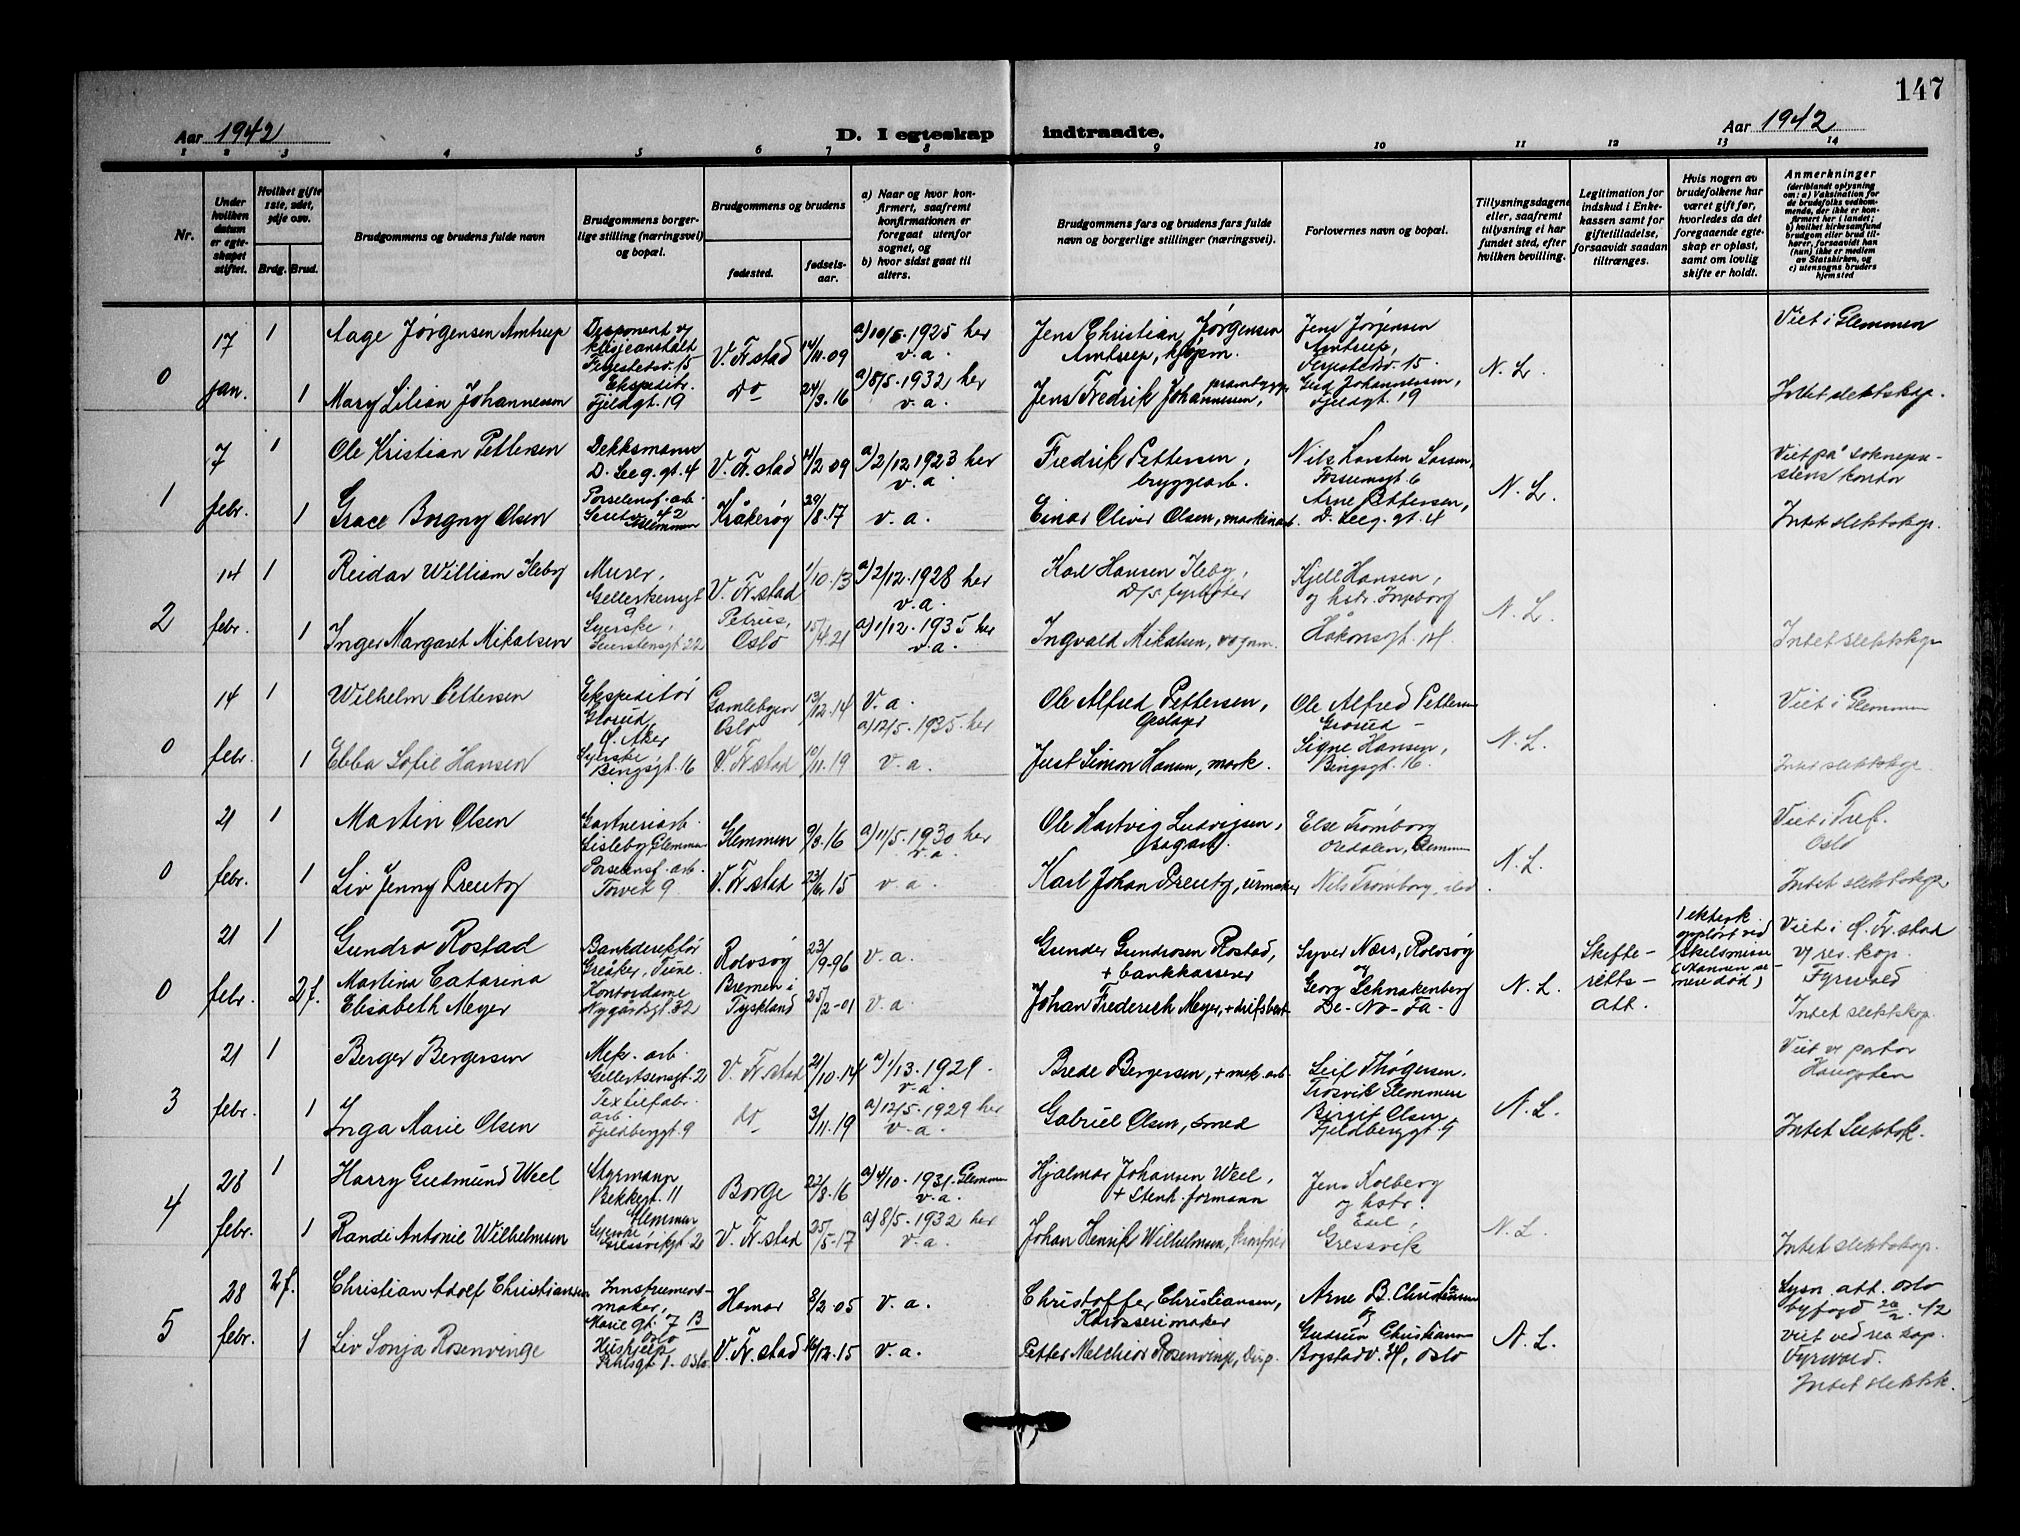 147
Aar 1942
D. I egteskap indtraadte.
Aar 1942
1 2 3 4 5 6 7 8 9 10 11 12 13 14
Nr.
Under hvilken datum er egte-skapet stiftet.
Hvilket gifte 1ste, 2det, 3dje osv.
Brdg. Brud.
Brudgommens og brudens fulde navn
Brudgommens borger-lige stilling (næringsvei) og bopæl.
Brudgommens og brudens
fødested.
fødsels-aar.
a) Naar og hvor kon-firmert, saafremt konfirmationen er foregaat utenfor sognet, og
b) hvor sidst gaat til alters.
Brudgommens fars og brudens fars fulde navn og borgerlige stillinger (næringsvei).
Forlovernes navn og bopæl.
Tillysningsdagene eller, saafremt tillysning ei har fundet sted, efter hvilken bevilling.
Legitimation for indskud i Enke-kassen samt for giftetilladelse, forsaavidt saadan tiltrænges.
Hvis nogen av brudefolkene har været gift før, hvorledes da det foregaaende egte-skap er opløst, samt om lovlig skifte er holdt.
Anmerkninger
(deriblandt oplysning om: a) Vaksination for de brudefolks vedkom-mende, der ikke er kon-firmert her i landet; b) hvilket kirkesamfund brudgom eller brud til-hører, forsaavidt han (hun) ikke er medlem av Statskirken, og c) utensogns bruders hjemsted
0
17 jan.
1
Aage Jørgensen Amtrup
Disponent v/ klisjeanstalt
V. Fr.stad
14/11.09
a) 10/5.1925 her
v.a.
Jens Christian Jørgensen Amtrup, kjøpm.
Jens Jørgensen Amtrup,
N. L.
Viet i Glemmen
1
Mary Lilian Johannessen
Ekspeditr. Fjeldgt. 19
do
24/3.16
a) 8/5.1932 her
v.a.
Jens Fredrik Johannessen,
Johannessen, Fjeldgt. 19
Intet slektskap.
1
7 febr.
1
Ole Kristian Pettersen
Dekksmann D. Seeg. gt. 4
V. Fr.stad
a) 2/12 1923 her
v.a.
Fredrik Pettersen, bryggearb.
Nils Larsen,
N. L.
Viet på sokneprestens kontor
1
Grace Borgny Olsen
Porselensf. arb. 42 Glemmen
Kråkerøy
29/8.17
v.a.
Einar Oliver Olsen,
Arne Pettersen, D. Seeg. gt. 4
Intet slektskap.
2
14 febr.
1
Reidar William Ileby
Murer,
V. Fr.stad
1/10.13
a) 2/12.1928 her
v.a.
Karl Hansen Ileby, D/S. fyrbøter
Kjell Hansen, og hstr. Ingeborg
N. L.
1
Inger Margaret Mikalsen
Syerske, 22
Petrus, Oslo
15/4.21
a) 1/12.1935 her
v.a.
Ingvald Mikalsen, vognm.
Håkonsgt. 14
Intet slektskap
0
14 febr.
1
Wilhelm Pettersen
Ekspeditør Ø. Aker
Gamlebyen Oslo
13/12.14
v.a.
Ole Alfred Pettersen,
Ole Alfred Pettersen
N. L.
Viet i Glemmen
1
Ebba Sofie Hansen
Syerske, Bingsgt. 16
V. Fr.stad
10/11.19
a) 12/5.1935 her
v.a.
Just Simon Hansen, mask.
Signe Hansen, Bingsgt. 16.
Intet slektskap.
0
21 febr.
1
Martin Olsen
Gartneriarb. Lisleby Glemmen
Glemmen
9/3.16
a) 11/5.1930 her
v.a.
Ole Hartvig Ludvigsen, sagarb.
Else Tromborg Oredalen, Glemmen
N. L.
Viet i Tref. Oslo
1
Liv Jenny Preutz
Porselensf. arb. Torvet 9
V. Fr.stad
23/6.15
v.a.
Karl Johan Preutz, urmaker
Nils Tromborg,
Intet slektskap
0
21 febr.
1
Gundro Rostad
Bankdirektør Greåker, Tune.
Rolvsøy
23/9.96
v.a.
Gunder Gundrosen Rostad, + bankkasserer
Syver Næss, Rolvsøy og
N. L.
Skifteretts-att.
1 ektesk. oppløst ved skilsmisse (Mannen senere død)
Viet i Ø. Fr.stad v/ res. kap. Fyrwald
2f.
Martina Catarina Elisabeth Meyer
Kontordame Nygaardsgt. 32
Bremen i Tyskland
25/2.01
v.a.
Johan Frederich Meyer,
Georg Schnakenberg De-No-Fa.
Intet slektskap.
3
21 febr.
1
Berger Bergersen
Mek. arb. Gellertsensgt. 2
V. Fr.stad
21/10.14
v.a.
Brede Bergersen, + mek. arb.
Leif Thøgersen. Trosvik Glemmen
N. L.
Viet v/ pastor Haugsten
1
Inga Marie Olsen
Textilfabr. arb. Fjeldberggt. 9
do
3/11.19
a) 12/5.1929 her
v.a.
Gabriel Olsen, smed
Birgit Olsen, Fjeldberggt. 9
Intet slektsk.
4
28 febr.
1
Harry Gudmund Weel
Styrmann Bekkegt. 11 Glemmen
Borge
22/8.16
a) 4/10.1931. Glemmen
v.a.
Hjalmar Johansen Weel, + Stenh. formann
Jens Kolberg og hstr.
N. L.
1
Randi Antonie Wilhelmsen
Syerske Gressvikgt. 2
V. Fr.stad
25/5.17
a) 8/5.1932 her
v.a.
Johan Henrik Wilhelmsen,
Gressvik
Intet slektskap.
5
28 febr.
2f.
Christian Adolf Christiansen
Innstrument-maker, Marie gt. 7 B Oslo
Hamar
8/2.05
v.a.
Christoffer Christiansen, Karosserimaker
Arne B. Christensen og
N. L.
Lysn. att. Oslo byfogd 20/2.42
viet ved res. kap. Fyrwald.
1
Liv Sonja Rosenvinge
Hushjelp Oslo
V. Fr.stad
16/12.15
v.a.
Petter Melchior Rosenvinge, Disp.
Gudrun Christiansen Bogstadv. Oslo
Intet slektsk.